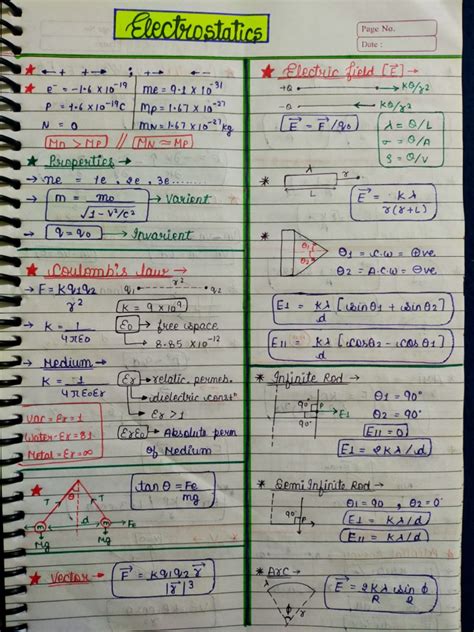 Electrostatics
Page No.
Date :
← + + → ; + → ← -
e⁻ = -1.6 x 10⁻¹⁹ me = 9.1 x 10⁻³¹
P = 1.6 x 10⁻¹⁹C Mp = 1.67 x 10⁻²⁷
N = 0 MN = 1.67 x 10⁻²⁷ kg
Mn > Mp // MN ≈ Mp
★ Properties →
→ ne = 1e, 2e, 3e......
→ m = mo / √1 - V²/c² → Varient
→ q = q₀ → Invarient
★ Coulomb's law →
→ F = Kq₁q₂ / r² q₁ r q₂
K = 9 x 10⁹
→ K = 1 / 4πε₀ ε₀ → free space
8.85 x 10⁻¹²
→ Medium →
K = 1 / 4πε₀εr εr → relatic. permes.
→ dielectric const
→ εr > 1
Vac = εr = 1
Water = εr = 81
Metal = εr = ∞
εrε₀ → Absolute perm
of Medium
θ T T d m m Fe Mg Mg
tanθ = Fe / mg
★ Vector → F⃗ = kq₁q₂ r⃗ / |r⃗|³
★ Electric field [E⃗] →
+Q → kθ/r²
-Q ← kθ/r²
E⃗ = F⃗/q₀
λ = θ/L
σ = θ/A
ρ = θ/V
* λ r L E⃗ = kλ / r(r+L)
* θ₁ = C.W = ⊕ve
θ₂ = A.C.W = ⊖ve
E⊥ = kλ / d [sinθ₁ + sinθ₂]
E॥ = kλ / d [cosθ₂ - cosθ₁]
* Infinite Rod →
90° 90° P E⊥
θ₁ = 90°
θ₂ = 90°
E॥ = 0
E⊥ = 2Kλ/d
* Semi Infinite Rod →
90° P
θ₁ = 90, θ₂ = 0°
E⊥ = kλ/d
E॥ = kλ/d
* Arc → E⃗ = 2Kλ / R sin ϕ / 2